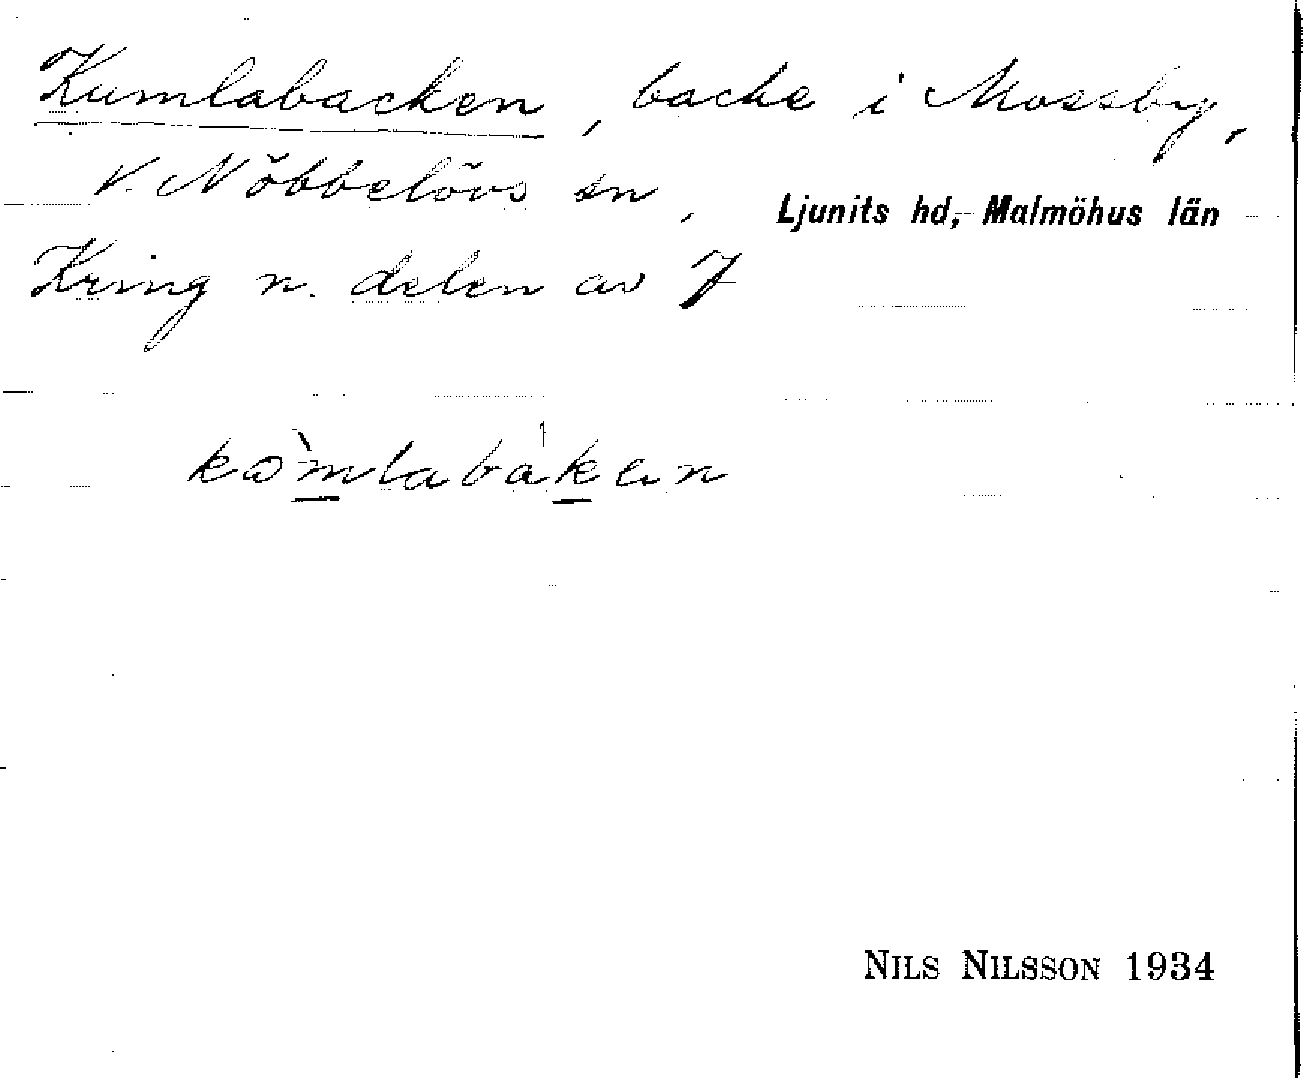 Kumlabacken, backe i Mossby,
V. Nöbbelövs sn, Ljunits hd, Malmöhus län
Kring n. delen av 7
NILS NILSSON 1934